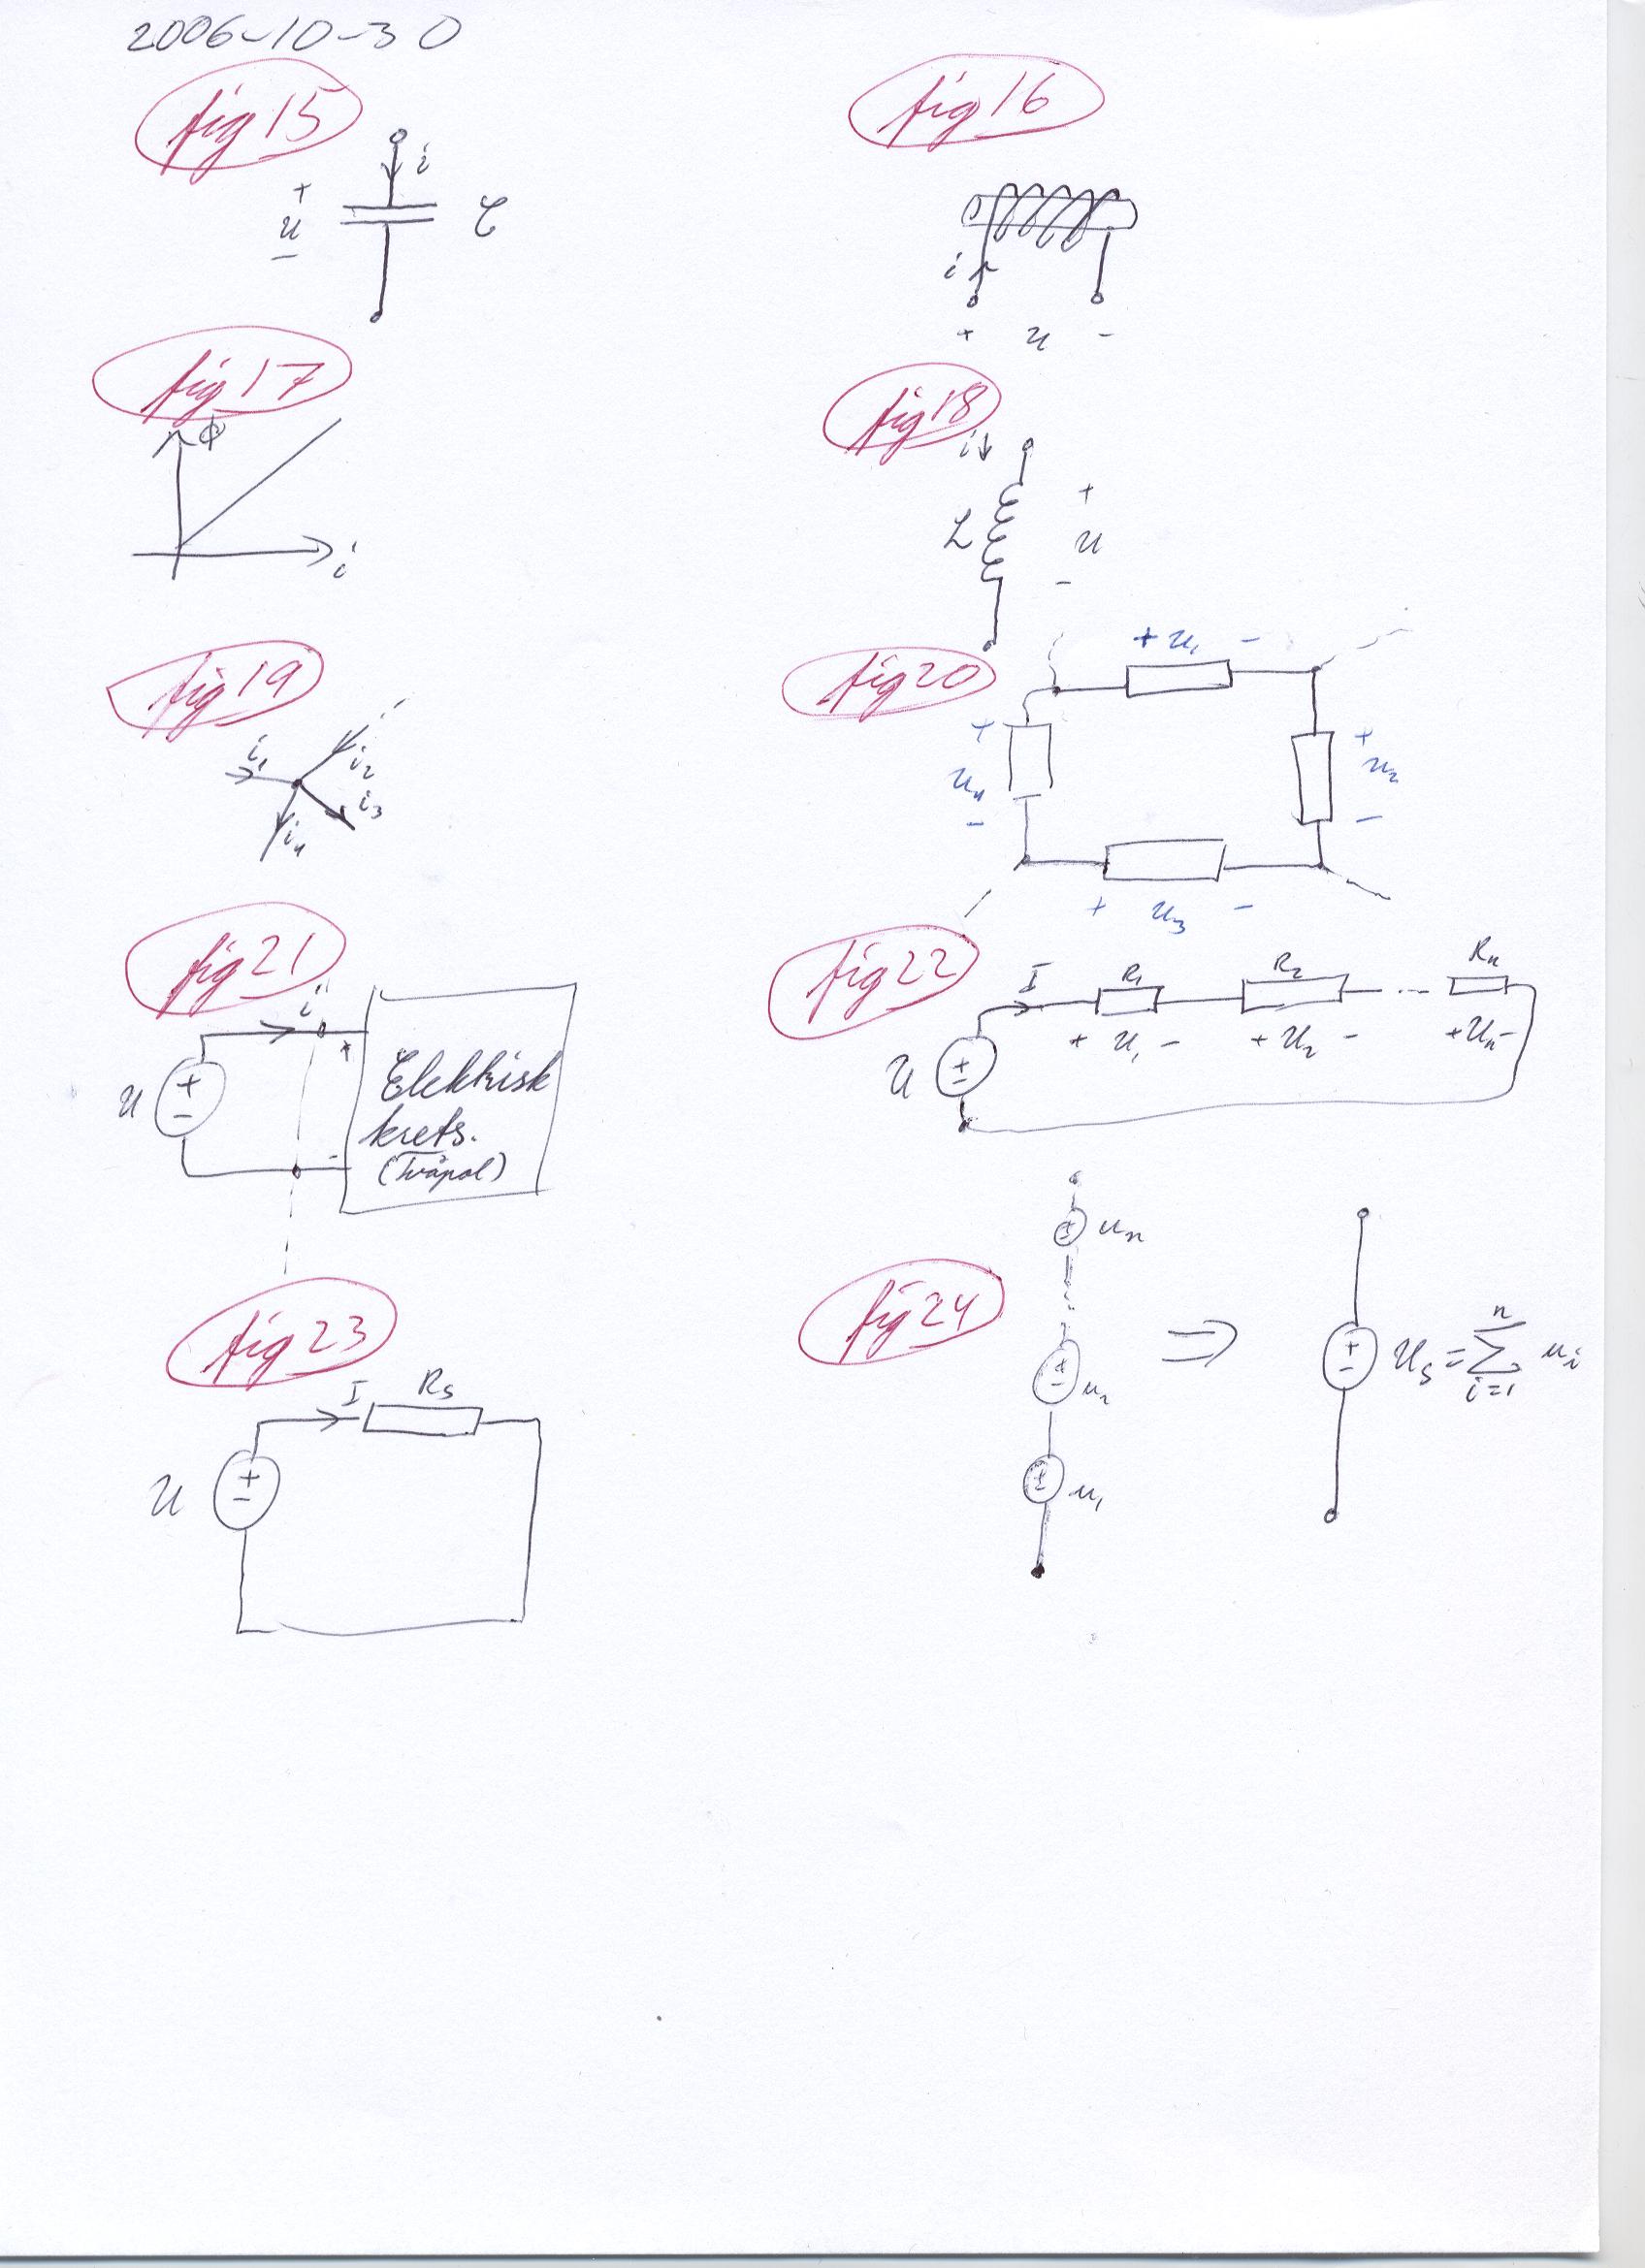 2006-10-30
fig 15
i
+
u
-
C
fig 16
i
+ u -
fig 17
Φ
i
fig 18
i
L
+
u
-
fig 19
i₁
i₂
i₃
i₄
fig 20
+ u₁ -
+
u₂
-
+
u₄
-
+ u₃ -
fig 21
i
u
+
-
+
-
Elektrisk
krets.
(Tvåpol)
fig 22
I R₁ R₂ ... Rn
+ U₁ - + U₂ - + Un -
U
+
-
fig 23
I Rs
U
+
-
fig 24
± un
± u₂
± u₁
⇒
+
-
Us = ∑ⁿᵢ₌₁ ui